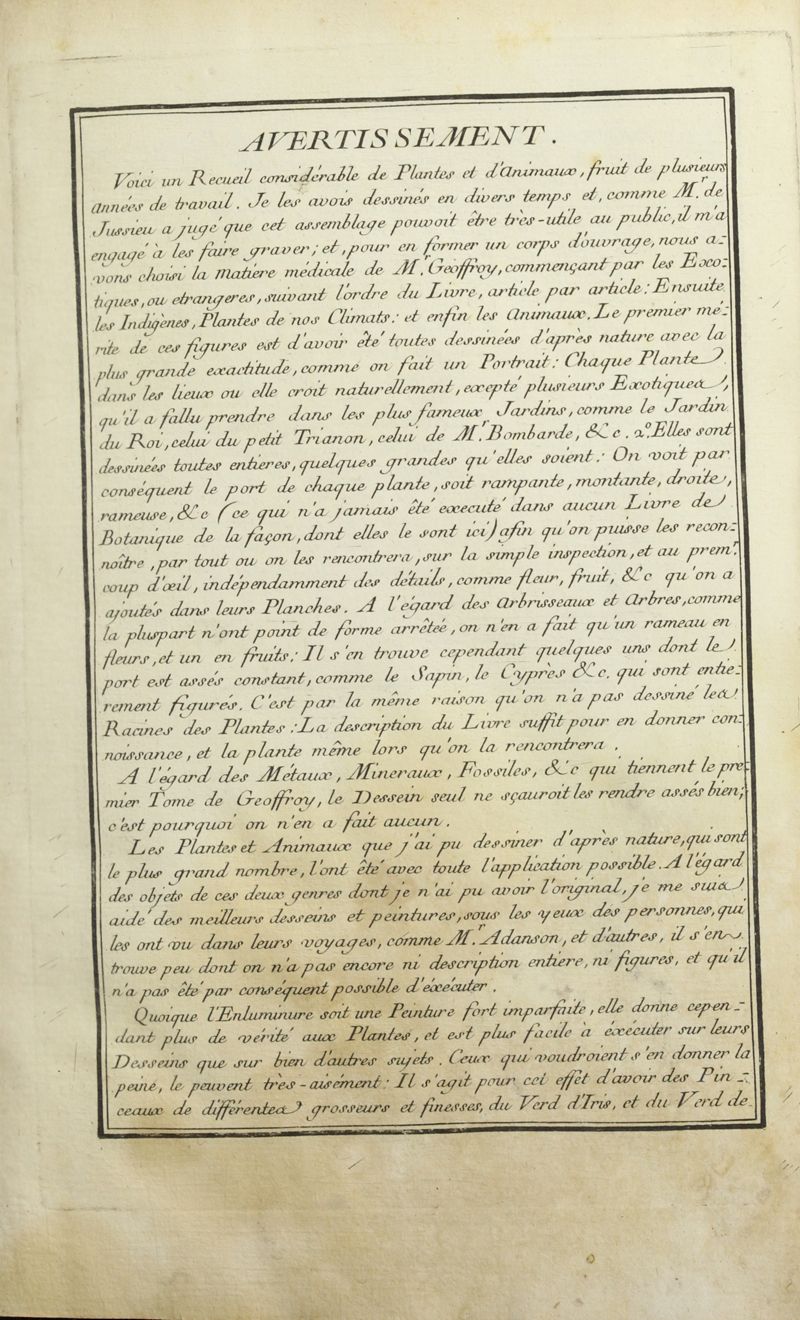 AVERTISSEMENT.
Voici un Recueil considérable de Plantes et d'Animaux, fruit de plusieurs
années de travail. Je les avois dessinés en divers temps et, comme Mr. de
Jussieu a jugé que cet assemblage pouvoit être très-utile au public, il m'a
engagé à les faire graver; et, pour en former un corps d'ouvrage, nous a-
vons choisi la Matiere médicale de Mr. Geoffroy, commençant par les Exo-
tiques, ou etrangeres, suivant l'ordre du Livre, article par article: Ensuite
les Indigènes, Plantes de nos Climats: et enfin les Animaux. Le premier mé-
rite de ces figures est d'avoir été toutes dessinées d'après nature avec la
plus grande exactitude, comme on fait un Portrait: Chaque Plante
dans les lieux ou elle croit naturellement, excepté plusieurs Exotiques,
qu'il a fallu prendre dans les plus fameux Jardins, comme le Jardin
du Roi, celui du petit Trianon, celui de Mr. Bombarde, &c. 2.º Elles sont
dessinées toutes entieres, quelques grandes qu'elles soient: On voit par
conséquent le port de chaque plante, soit rampante, montante, droite,
rameuse, &c (ce qui n'a jamais été executé dans aucun Livre de
Botanique de la façon, dont elles le sont ici) afin qu'on puisse les recon-
noître, par tout ou on les rencontrera, sur la simple inspection, et au prem.r
coup d'œil, indépendamment des détails, comme fleur, fruit, &c qu'on a
ajoutés dans leurs Planches. A l'égard des Arbrisseaux et Arbres, comme
la pluspart n'ont point de forme arrêtée, on n'en a fait qu'un rameau en
fleurs, et un en fruits: Il s'en trouve cependant quelques uns dont le
port est assés constant, comme le Sapin, le Cyprès &c. qui sont entie-
rement figurés. C'est par la même raison qu'on n'a pas dessiné les
Racines des Plantes: La description du Livre suffit pour en donner con-
noissance, et la plante même lors qu'on la rencontrera.
A l'égard des Métaux, Mineraux, Fossiles, &c qui tiennent le pre-
mier Tome de Geoffroy, le Dessein seul ne sçauroit les rendre assés bien;
c'est pourquoi on n'en a fait aucun.
Les Plantes et Animaux que j'ai pu dessiner d'après nature, qui sont
le plus grand nombre, l'ont été avec toute l'application possible. A l'égard
des objets de ces deux genres dont je n'ai pu avoir l'original, je me suis
aidé des meilleurs desseins et peintures, sous les yeux des personnes, qui
les ont vu dans leurs voyages, comme Mr. Adanson, et d'autres, il s'en
trouve peu dont on n'a pas encore ni description entiere, ni figures, et qu'il
n'a pas été par conséquent possible d'éxécuter.
Quoique l'Enluminure soit une Peinture fort imparfaite, elle donne cepen-
dant plus de vérité aux Plantes, et est plus facile à éxécuter sur leurs
Desseins que sur bien d'autres sujets. Ceux qui voudroient s'en donner la
peine, le peuvent très-aisément: Il s'agit pour cet effet d'avoir des Pin-
ceaux de différentes grosseurs et finesses, du Verd d'Iris, et du Verd de-